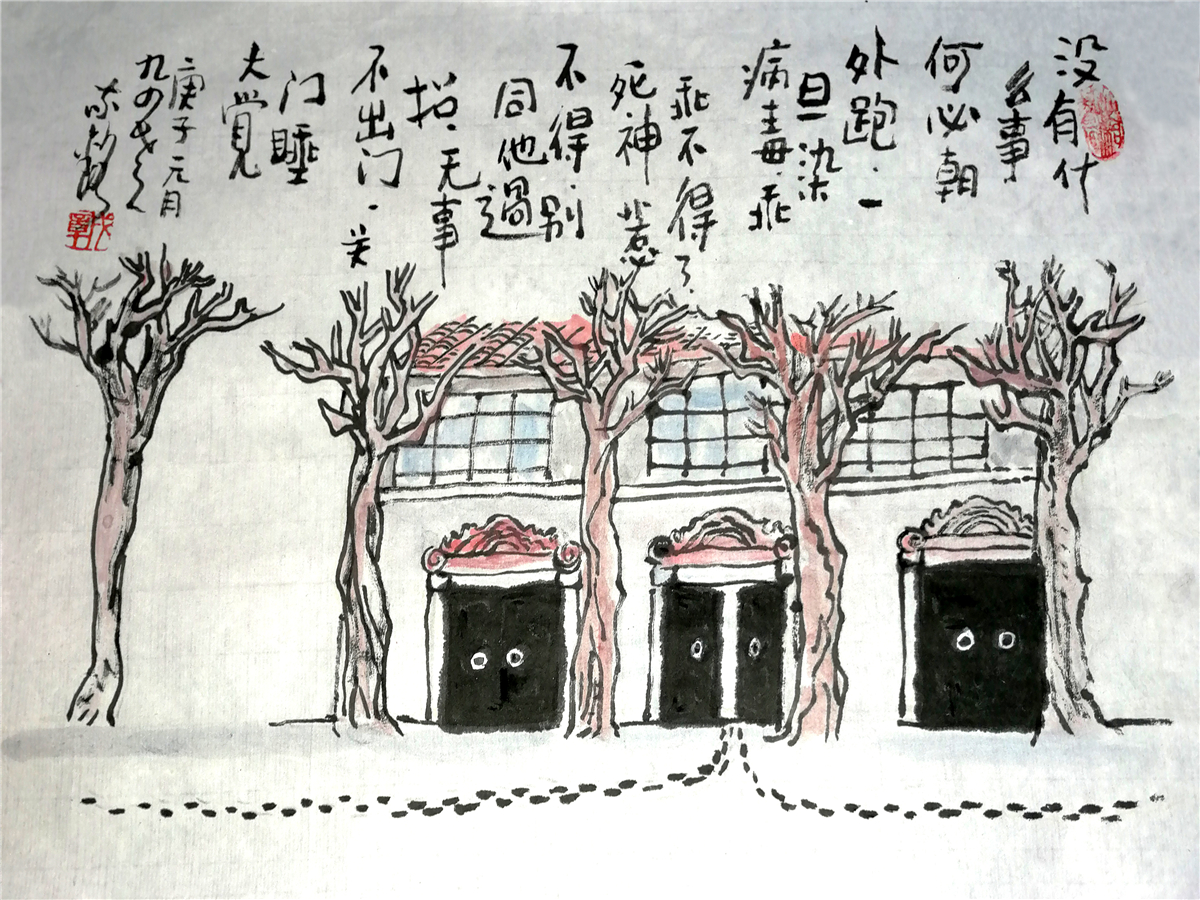 没有什
么事
何必朝
外跑.一
旦染
病毒.乖
乖不得了.
死神惹
不得.别
同他過
招.无事
不出门.关
门睡
大觉
庚子元月
九四老人